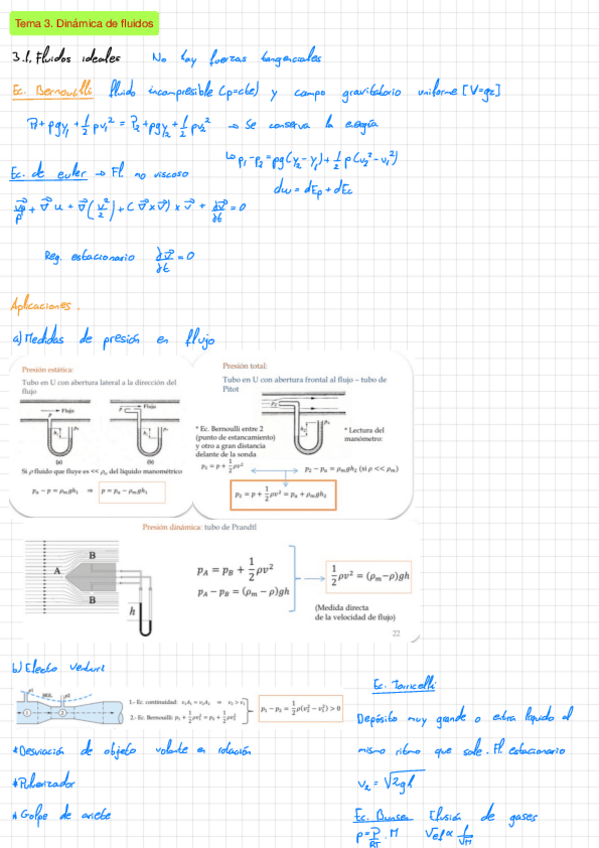 Tema 3. Dinámica de fluidos
3.1. Fluidos ideales No hay fuerzas tangenciales
Ec. Bernouilli fluido incompresible (ρ=cte) y campo gravitatorio uniforme [V=gz]
P₁ + ρgy₁ + 1/2 ρv₁² = P₂ + ρgy₂ + 1/2 ρv₂² → Se conserva la energía
↳ p₁-p₂ = ρg(y₂-y₁) + 1/2 ρ(v₂²-v₁²)
Ec. de euler → Fl. no viscoso
dw = dEp + dEc
Reg. estacionario ∂v/∂t = 0
Aplicaciones.
a) Medidas de presión en flujo
Presión estática:
Tubo en U con abertura lateral a la dirección del
flujo
Flujo
Flujo
(a) (b)
Si ρ fluido que fluye es << ρₘ del líquido manométrico
pₐ − p = ρₘgh₁ ⇒ p = pₐ − ρₘgh₁
Presión total:
Tubo en U con abertura frontal al flujo – tubo de
Pitot
* Ec. Bernoulli entre 2
(punto de estancamiento)
y otro a gran distancia
delante de la sonda
p₂ = p + 1/2 ρv²
* Lectura del
manómetro:
p₂ − pₐ = ρₘgh₂ (si ρ << ρₘ)
p₂ = p + 1/2 ρv² = pₐ + ρₘgh₂
Presión dinámica: tubo de Prandtl
A B B h
p_A = p_B + 1/2 ρv²
p_A − p_B = (ρₘ − ρ)gh
1/2 ρv² = (ρₘ−ρ)gh
(Medida directa
de la velocidad de flujo)
22
b) Efecto Venturi
1.- Ec. continuidad: v₁A₁ = v₂A₂ ⇒ v₂ > v₁
2.- Ec. Bernoulli: p₁ + 1/2 ρv₁² = p₂ + 1/2 ρv₂²
p₁ − p₂ = 1/2 ρ(v₂² − v₁²) > 0
* Desviación de objeto volante en rotación
* Pulverizador
* Golpe de ariete
Ec. Torricelli
Depósito muy grande o entra líquido al
mismo ritmo que sale. Fl. estacionario
v₂ = √2gh
Ec. Bunsen Efusión de gases
ρ = P/RT · M Vef ∝ 1/√M